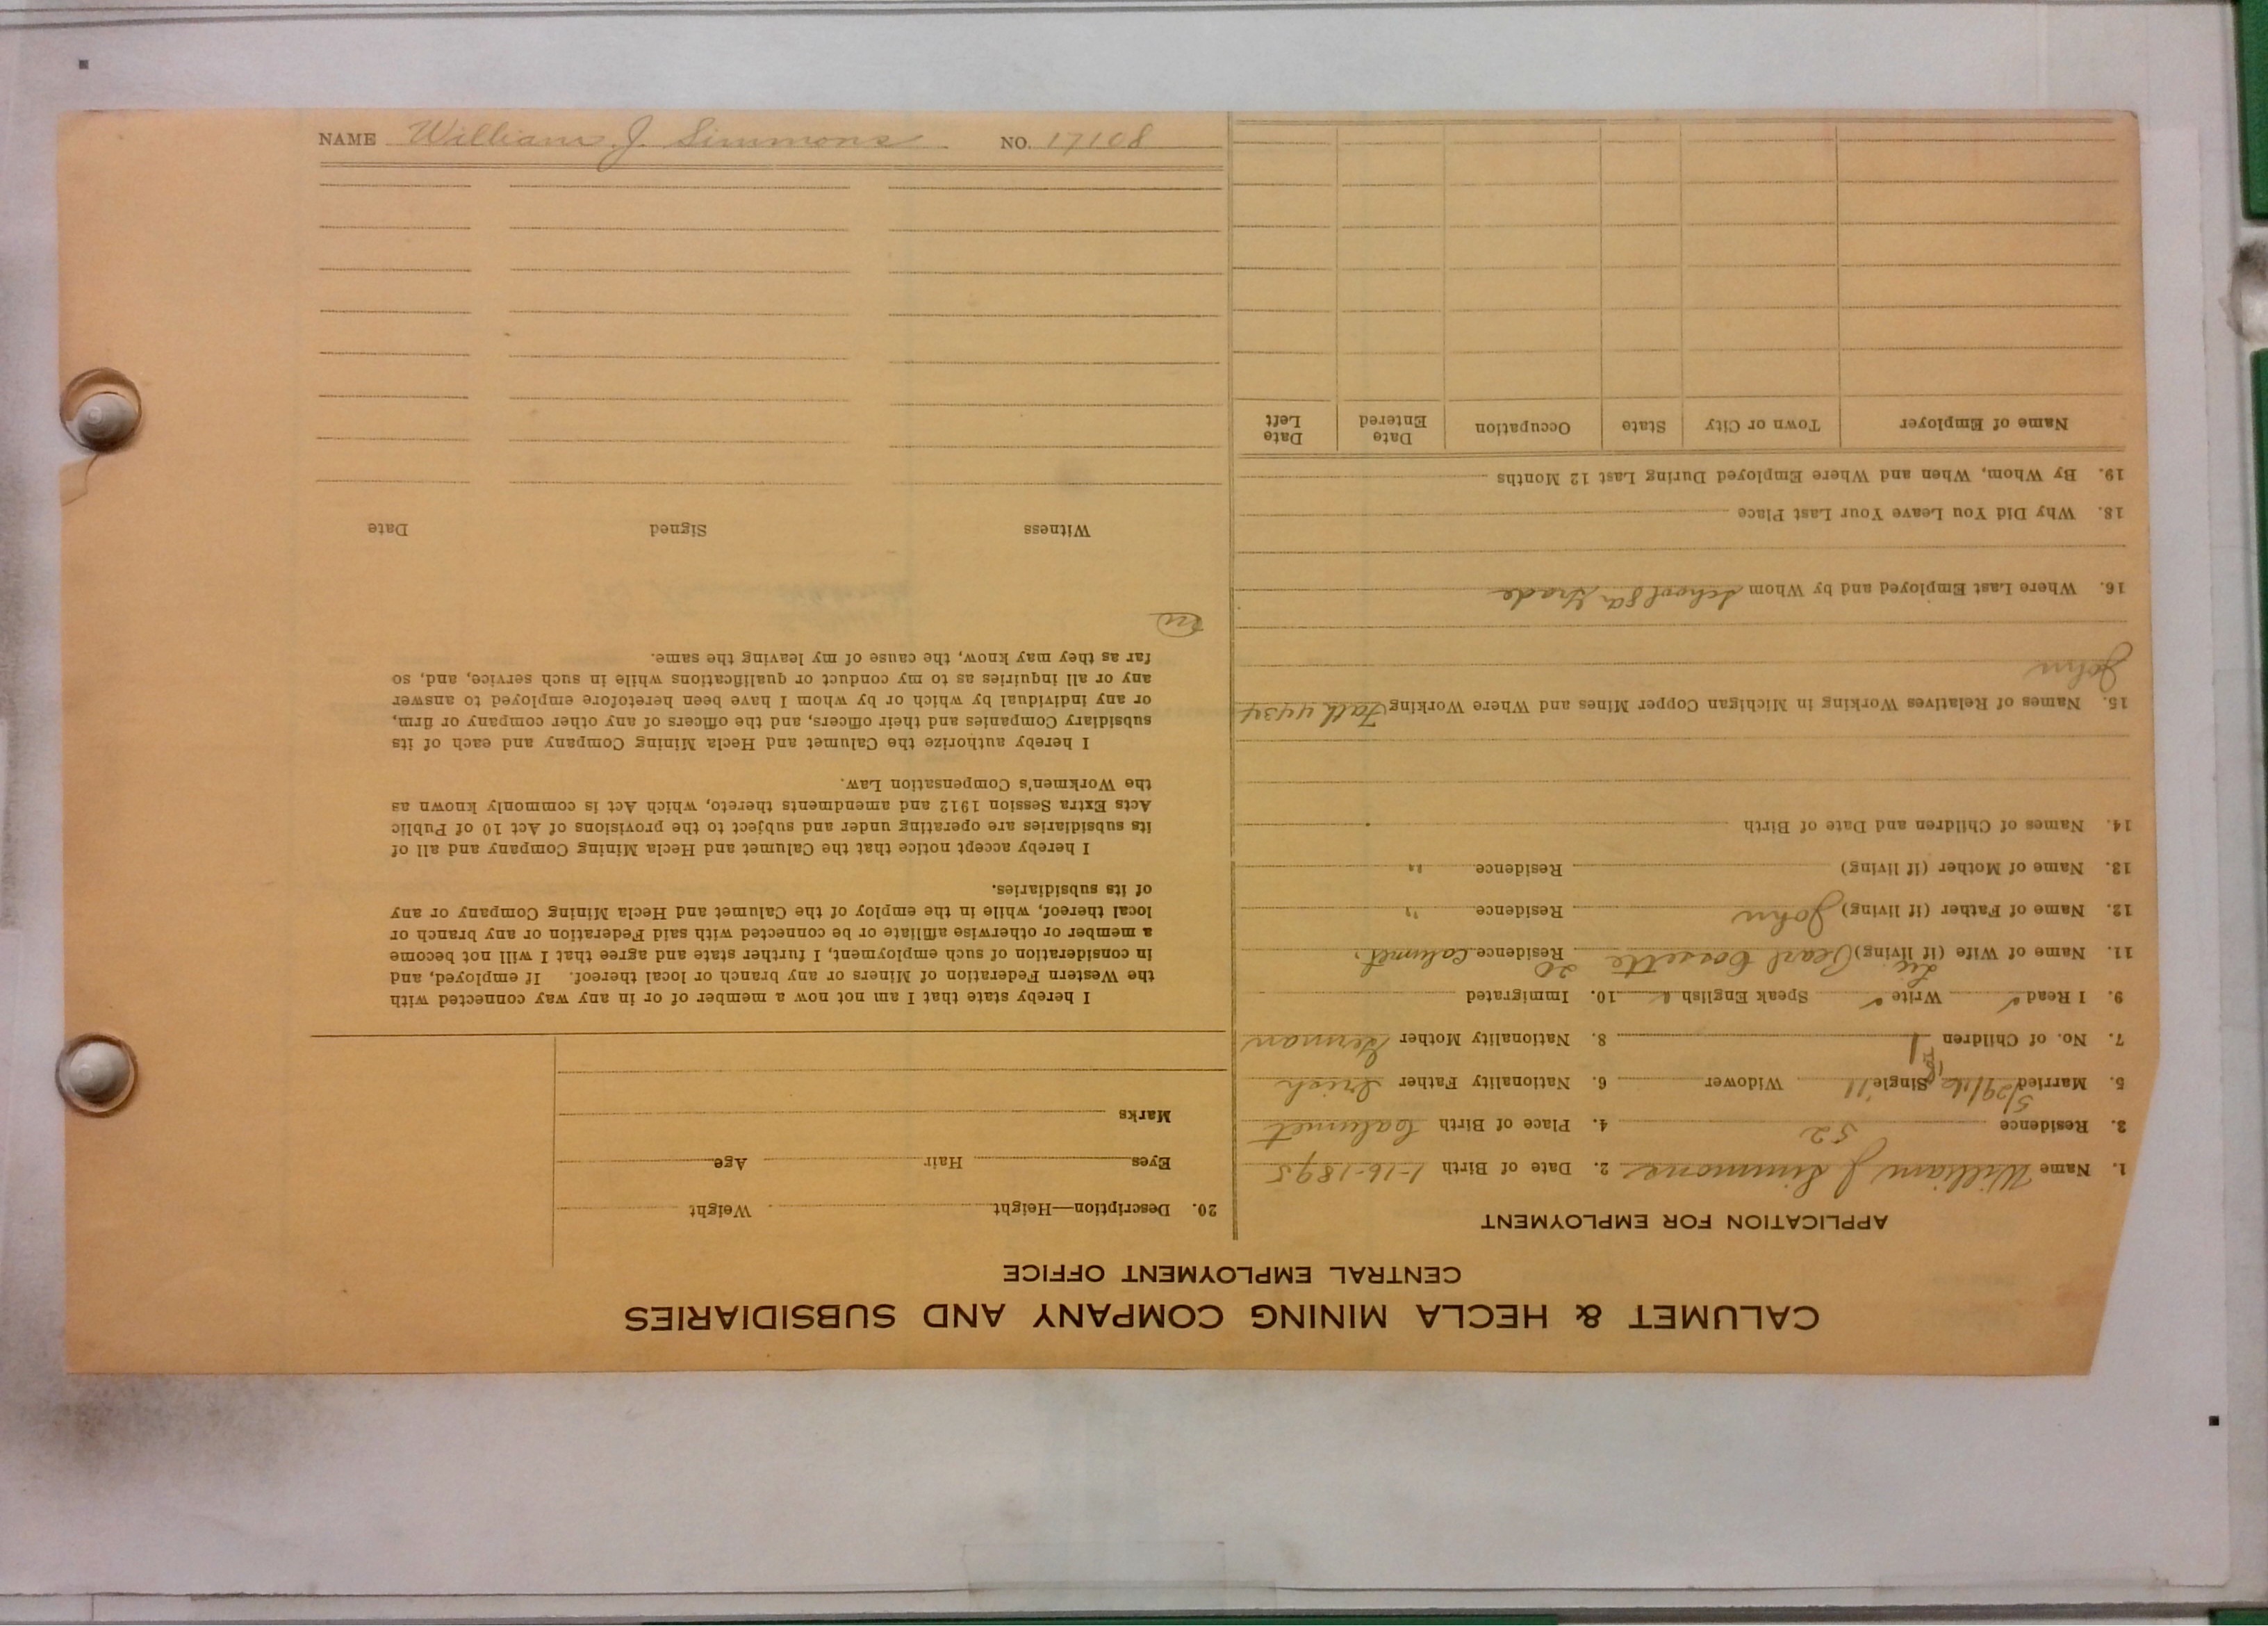 CALUMET & HECLA MINING COMPANY AND SUBSIDIARIES
CENTRAL EMPLOYMENT OFFICE
APPLICATION FOR EMPLOYMENT
1. Name William J Simmons 2. Date of Birth 1-16-1895
3. Residence 52 4. Place of Birth Calumet
5. Married 5/29/16 Single 11 Widower 6. Nationality Father Irish
7. No. of Children 1 8. Nationality Mother German
9. I Read ✓ Write ✓ Speak English ✓ 10. Immigrated
11. Name of Wife (if living) Pearl Cossette 20 Residence Calumet.
12. Name of Father (if living) John Residence "
13. Name of Mother (if living) Residence "
14. Names of Children and Date of Birth
15. Names of Relatives Working in Michigan Copper Mines and Where Working Fath 4434
John
16. Where Last Employed and by Whom School 8a Grade
18. Why Did You Leave Your Last Place
19. By Whom, When and Where Employed During Last 12 Months
Name of Employer Town or City State Occupation Date Entered Date Left
20. Description—Height Weight
Eyes Hair Age
Marks
I hereby state that I am not now a member of or in any way connected with
the Western Federation of Miners or any branch or local thereof. If employed, and
in consideration of such employment, I further state and agree that I will not become
a member or otherwise affiliate or be connected with said Federation or any branch or
local thereof, while in the employ of the Calumet and Hecla Mining Company or any
of its subsidiaries.
I hereby accept notice that the Calumet and Hecla Mining Company and all of
its subsidiaries are operating under and subject to the provisions of Act 10 of Public
Acts Extra Session 1912 and amendments thereto, which Act is commonly known as
the Workmen's Compensation Law.
I hereby authorize the Calumet and Hecla Mining Company and each of its
subsidiary Companies and their officers, and the officers of any other company or firm,
or any individual by which or by whom I have been heretofore employed to answer
any or all inquiries as to my conduct or qualifications while in such service, and, so
far as they may know, the cause of my leaving the same.
Witness Signed Date
NAME William J. Simmons NO. 17108